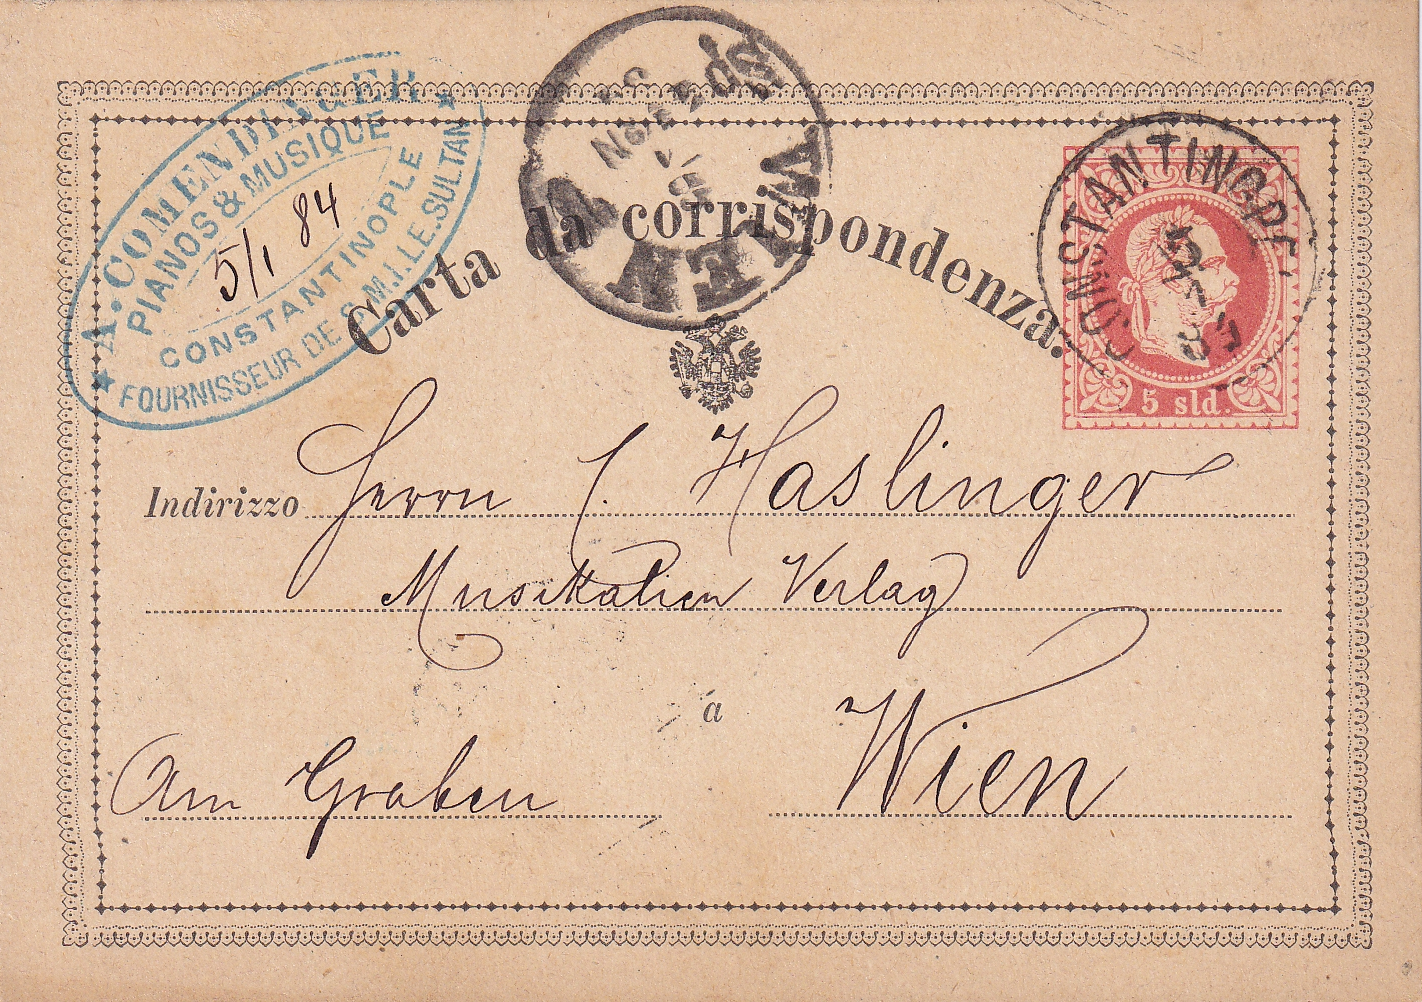 A. COMENDINGER
PIANOS & MUSIQUE
5/1 84
CONSTANTINOPLE
FOURNISSEUR DE S.M.I. LE SULTAN
WIEN
Carta da corrispondenza.
CONSTANTINOPEL
5 sld.
Indirizzo Herrn C. Haslinger
Musikalien Verlag
à Wien
Am Graben